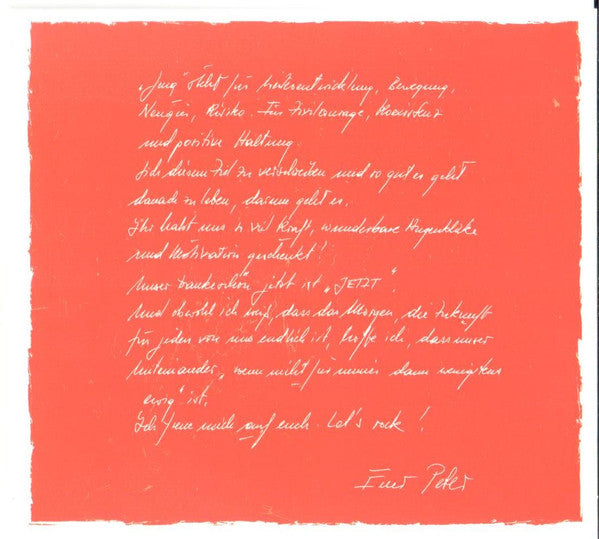 „Jung" steht für Weiterentwicklung, Bewegung,
Neugier, Risiko. Für Zivilcourage, Konsistenz
und positive Haltung.
Sich diesem Ziel zu verschreiben und so gut es geht
danach zu leben, darum geht es.
Ihr habt uns so viel Kraft, wunderbare Augenblicke
und Motivation geschenkt!
Unser Dankeschön jetzt ist „JETZT".
Und obwohl ich weiß, dass das Morgen, die Zukunft
für jeden von uns endlich ist, hoffe ich, dass unser
Miteinander „wenn nicht für immer dann wenigstens
ewig" ist.
Ich freue mich auf euch. Let's rock!
Euer Peter